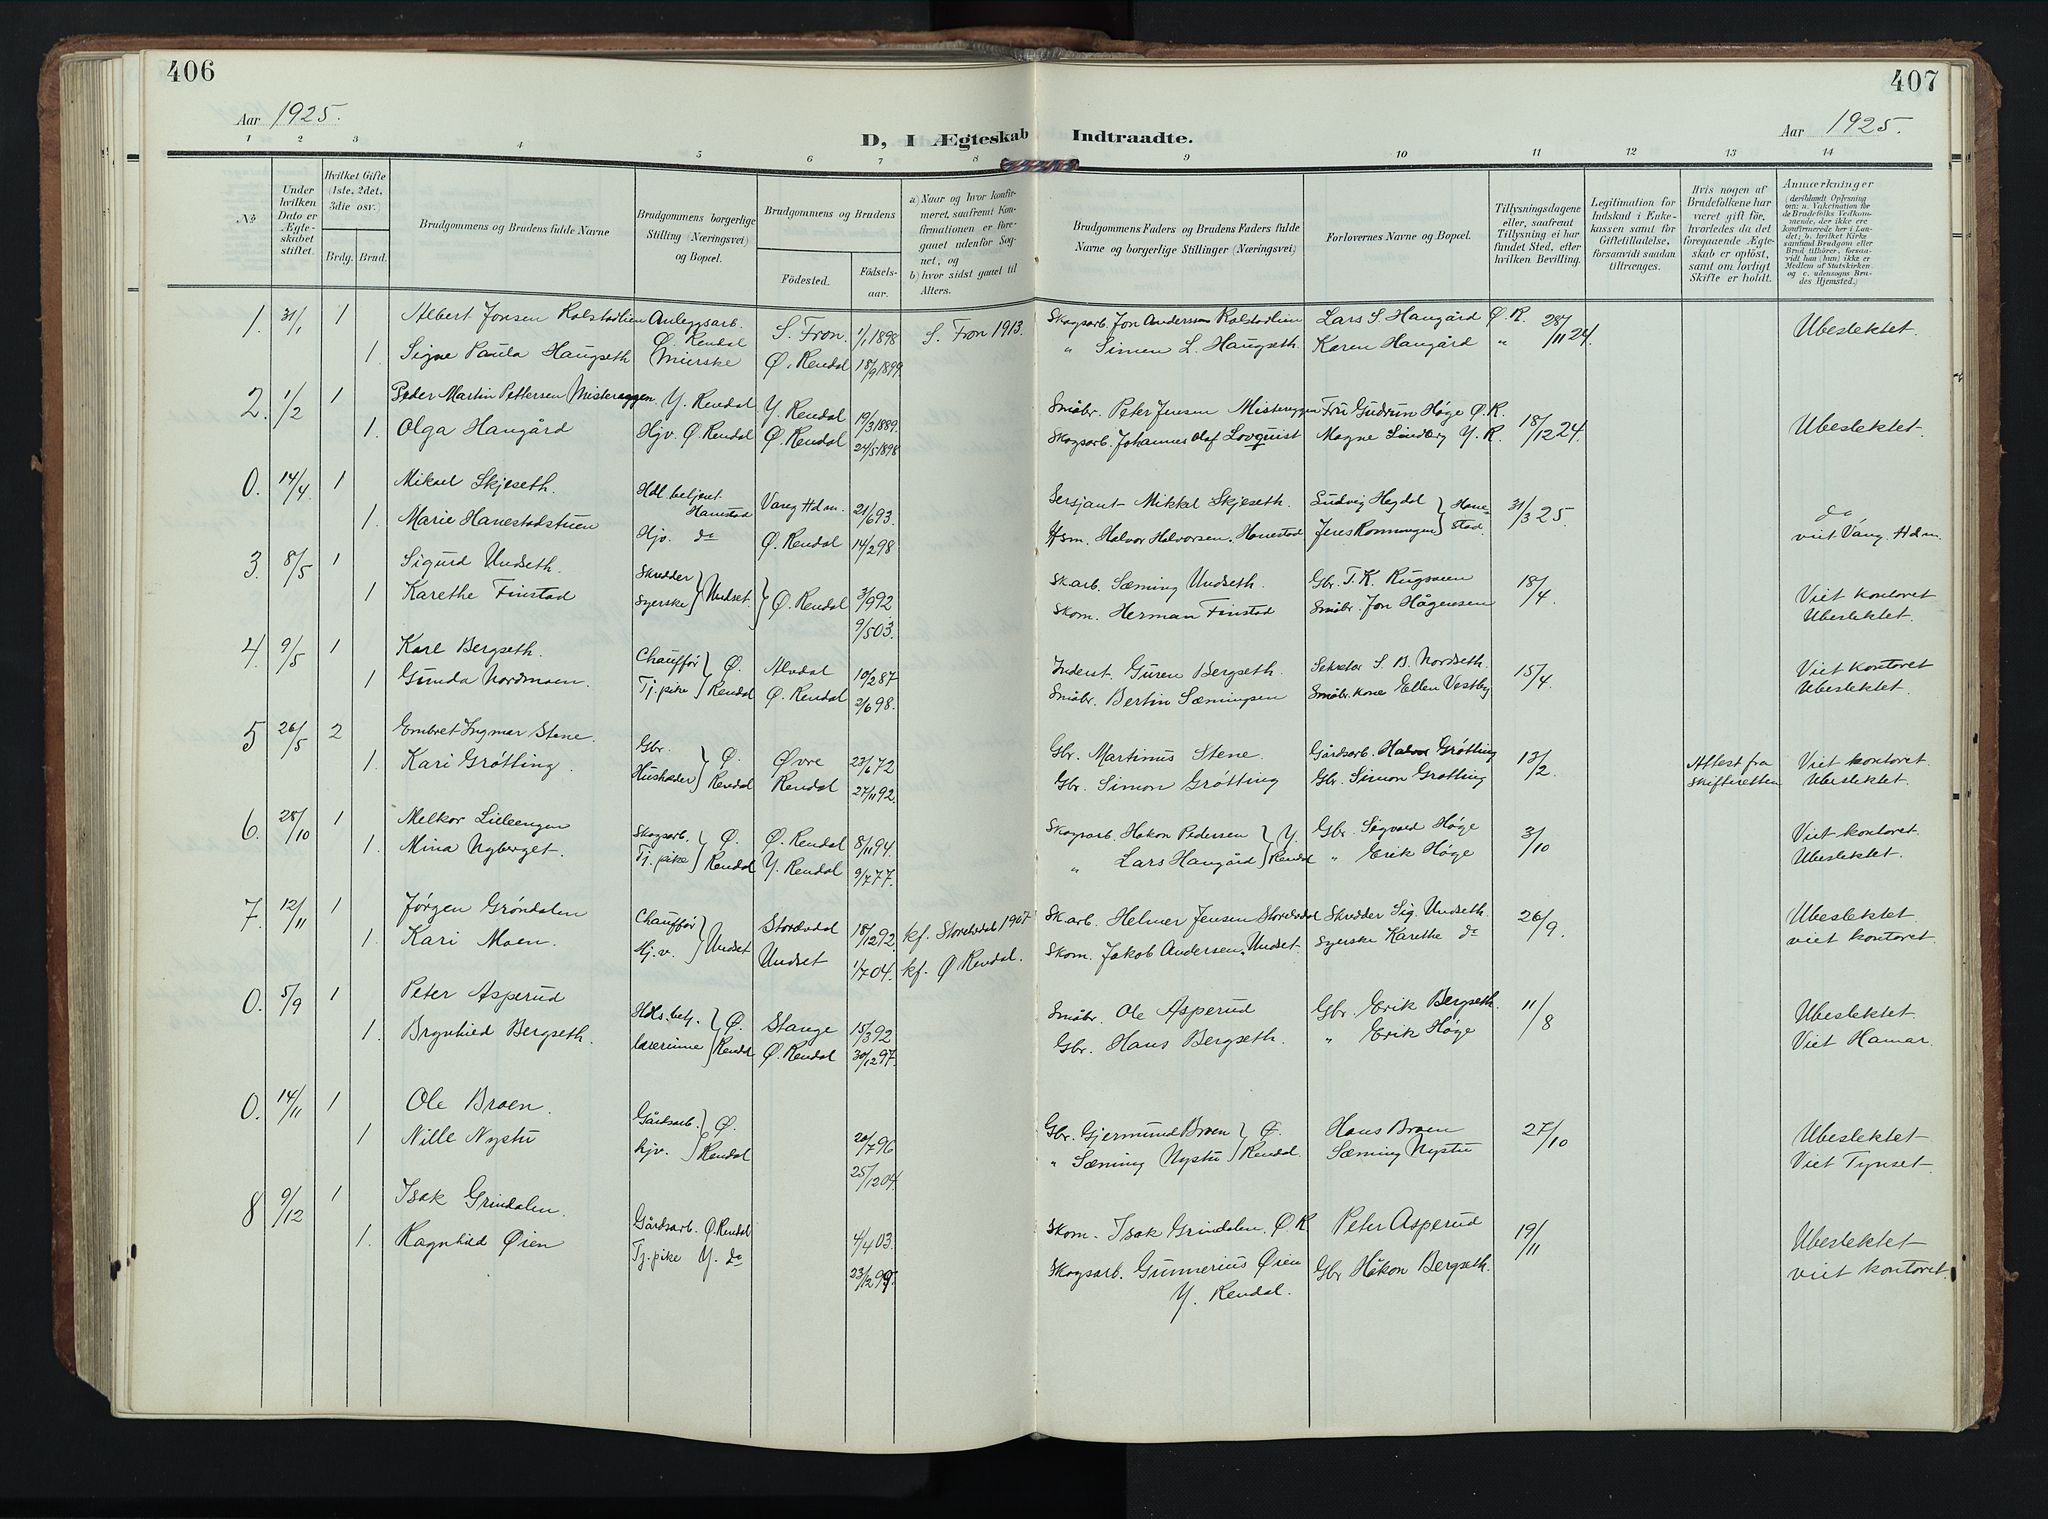 406
407
Aar 1925.
D, I Ægteskab Indtraadte.
Aar 1925.
1 2 3 4 5 6 7 8 9 10 11 12 13 14
No
Under hvilken Dato er Ægteskabet stiftet.
Hvilket Gifte (1ste, 2det, 3die osv.)
Brdg. Brud.
Brudgommens og Brudens fulde Navne
Brudgommens borgerlige Stilling (Næringsvei) og Bopæl.
Brudgommens og Brudens
Fødested.
Fødselsaar.
a) Naar og hvor konfirmeret, saafremt Konfirmationen er foregaaet udenfor Sognet, og
b) hvor sidst gaaet til Alters.
Brudgommens Faders og Brudens Faders fulde Navne og borgerlige Stillinger (Næringsvei)
Forlovernes Navne og Bopæl.
Tillysningsdagene eller, saafremt Tillysning ei har fundet Sted, efter hvilken Bevilling.
Legitimation for Indskud i Enkekassen samt for Giftetilladelse, forsaavidt saadan tiltrænges.
Hvis nogen af Brudefolkene har været gift før, hvorledes da det foregaaende Ægteskab er opløst, samt om lovligt Skifte er holdt.
Anmærkninger (deriblandt Oplysning om: a. Vakcination for de Brudefolks Vedkommende, der ikke ere konfirmerede her i Landet; b. hvilket Kirkesamfund Brudgom eller Brud tilhører, forsaavidt han (hun) ikke er Medlem af Statskirken og c. udensogns Brudes Hjemsted.)
1. 31/1 1 Albert Jonsen Rolstadlien Anleggsarb. Ø. Rendal S. Fron. 1/1 1898 S. Fron 1913. Skogsarb. Jon Anderssen Rolstadlien Lars S. Haugård Ø. R. 28/11 24. Ubeslektet.
1. Signe Paula Haugseth Ø. Rendal 18/9 1899. " Simen L. Haugseth. Karen Haugård "
2. 1/2 1 Peder Martin Pettersen Misteræggen Y. Rendal Y. Rendal 19/3 1889. Småbr. Peter Jensen Misteræggen Fru Gudrun Høge Ø. R. 18/12 24. Ubeslektet.
1. Olga Haugård Hjv. Ø. Rendal Ø. Rendal 24/5 1898 Skogsarb. Johannes Olaf Lovquist Magne Lindberg Y. R.
0. 14/4. 1 Mikael Skjeseth. Hdl. betjent Hanestad Vang Hdm. 21/6 93. Sersjant Mikkel Skjeseth. Ludvig Heydal } Hanestad. 31/3 25. do
1. Marie Hanestadstuen Hjv. do Ø. Rendal 14/2 98 Hsm. Halvor Halvorsen. Hanestad Jens Rønningen viet Vang. Hdm.
3. 8/5 1 Sigurd Undseth. Skredder } Undset } Ø. Rendal 3/9 92 Skarb. Sæming Undseth. Gbr. T. K. Rugsveen 18/4 Viet kontoret
1 Karethe Finstad Syerske 9/5 03. Skom. Herman Finstad Småbr. Jon Hågensen Ubeslektet.
4. 9/5 1 Karl Bergseth. Chauffør } Ø. Rendal Alvdal 10/2 87 Indent. Guren Bergseth. Sekretær S. B. Nordseth. 15/4. Viet kontoret
1 Gunda Nordmoen. Tj. pike Ø. Rendal 2/6 98. Småbr. Bertin Sæmingsen Småbr. kone Ellen Vestby Ubeslektet.
5 26/5 2 Embret Ingmar Stene. Gbr. } Ø. Rendal Øvre Rendal 23/6 72 Gbr. Martinus Stene. Gårdsarb. Halvor Grøtting 13/2. Attest fra Skifteretten Viet kontoret.
1. Kari Grøtting. 27/11 92. Gbr. Simon Grøtting Gbr. Simon Grøtting Ubeslektet.
6. 28/10 1 Melkor Lilleengen Skogsarb. } Ø. Rendal Ø. Rendal 8/11 94. Skogsarb. Hakon Pedersen } Y. Rendal Gbr. Sigvald Høge 3/10 Viet kontoret.
1. Mina Nyberget. Tj. pike Y. Rendal 9/7 77. " Lars Haugård " Erik Høge Ubeslektet.
7. 12/11 1 Jørgen Grøndalen Chauffør } Undset Storelvdal 18/12 92 kf. Storelvdal 1907 Skarb. Helmer Jensen Storelvdal Skredder Sig. Undseth. 26/9. Ubeslektet.
1. Kari Moen. Hj. v. Undset 1/7 04. kf. Ø Rendal. Skom. Jakob Andersen. Undset. Syerske Karethe do viet kontoret.
0. 5/9 1 Peter Asperud Hdls. betj. } Ø. Rendal Stange 15/3 92 Småbr. Ole Asperud Gbr. Erik Bergseth. 11/8 Ubeslektet.
1. Brynhild Bergseth. lærerinne Ø. Rendal 30/12 97. Gbr. Hans Bergseth. " Erik Høge Viet Hamar.
0. 14/11 1 Ole Broen. Gårdsarb. } Ø. Rendal 20/7 96 Gbr. Gjermund Broen } Ø. Rendal. Hans Broen 27/10 Ubeslektet
1 Nille Nystu hjv. 25/12 04. " Sæming Nystu Sæming Nystu Viet Tynset.
8 9/12 1 Isak Grindalen. Gårdsarb. Ø. Rendal 4/4 03. Skom. Isak Grindalen. Ø R. Peter Asperud 19/11 Ubeslektet
1. Ragnhild Øien Tj. pike Y. do 23/12 99. Skogsarb. Gunnerius Øien Y. Rendal. Gbr Håkon Bergseth. viet kontoret.